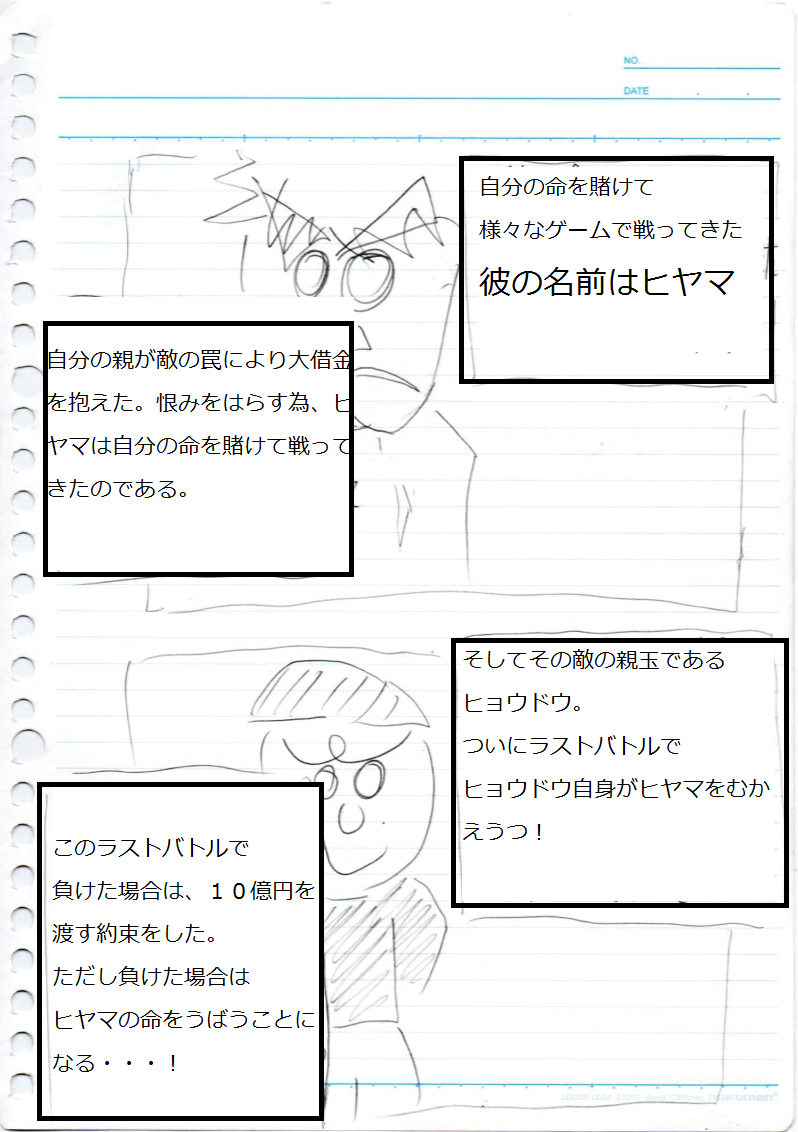 NO.
DATE
自分の命を賭けて
様々なゲームで戦ってきた
彼の名前はヒヤマ
自分の親が敵の罠により大借金
を抱えた。恨みをはらす為、ヒ
ヤマは自分の命を賭けて戦って
きたのである。
そしてその敵の親玉である
ヒョウドウ。
ついにラストバトルで
ヒョウドウ自身がヒヤマをむか
えうつ！
このラストバトルで
負けた場合は、１０億円を
渡す約束をした。
ただし負けた場合は
ヒヤマの命をうばうことに
なる・・・！
maruman